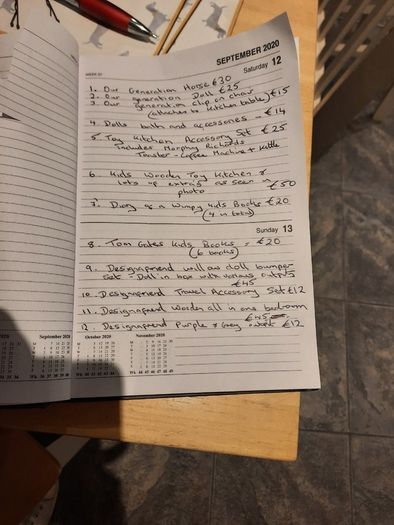 SEPTEMBER 2020
Saturday 12
1. Our Generation Horse €30
2. Our generation Doll €25
3. Our generation clip on chair €15
(attaches to kitchen table)
4. Dolls bath and accessories = €14
5. Toy Kitchen Accessory Set €25
includes Morphy Richards
Toaster - Coffee Machine + Kettle
6. Kids Wooden Toy Kitchen +
lots of extras as seen in
photo €50
7. Diary of a Wimpy kids Books €20
(4 in total)
Sunday 13
8. Tom Gates Kids Books = €20
(6 books)
9. Designafriend doll bumper
set - Doll in box with various outfits
€45
10. Designafriend Travel Accessory Set €12
11. Designafriend Wooden all in one bedroom
€45
12. Designafriend Purple + Grey €12
September 2020
October 2020
November 2020